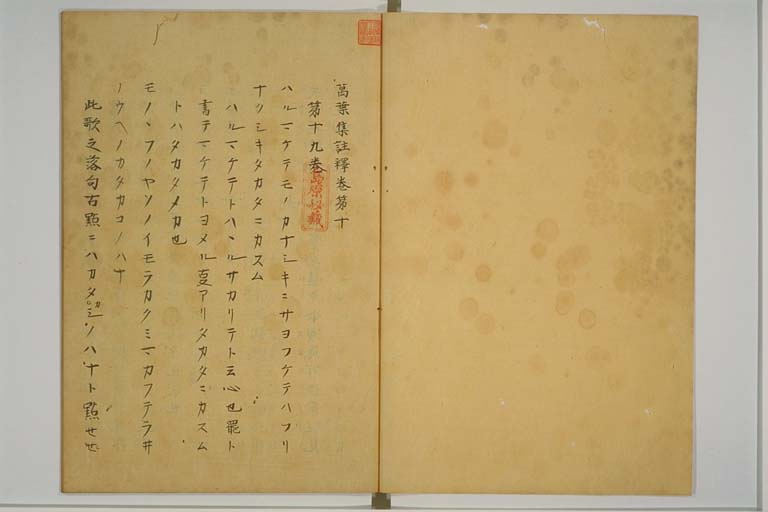 萬葉集註釋卷第十
第十九卷
ハルマケテモノカナシキニサヨフケテハフリ
ナリシキタカタニカスム
ハルマケテトハヽルサカリテト云心也罷ト
書テマケテトヨメル夏アリタカタニカスム
トハタカタメカ也
モノヽフノヤソノイモラカクミマカフテラ井
ノウヘノカタカコノハナ
此歌之落句古點ニハカタカシノハナト點セリ